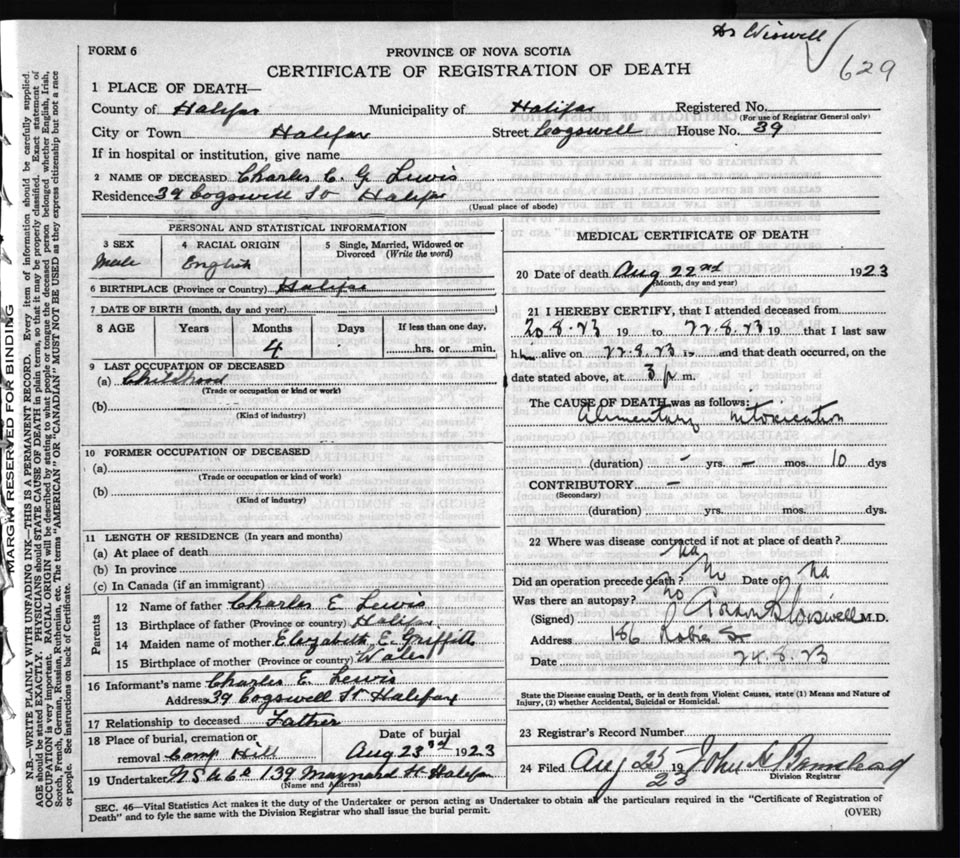 Dr Wiswell
629
FORM 6
PROVINCE OF NOVA SCOTIA
CERTIFICATE OF REGISTRATION OF DEATH
1 PLACE OF DEATH—
County of Halifax Municipality of Halifax Registered No.
(For use of Registrar General only)
City or Town Halifax Street Cogswell House No. 39
If in hospital or institution, give name
2 NAME OF DECEASED Charles C. G. Lewis
Residence 39 Cogswell St Halifax
(Usual place of abode)
PERSONAL AND STATISTICAL INFORMATION
3 SEX 4 RACIAL ORIGIN 5 Single, Married, Widowed or
Divorced (Write the word)
Male English
6 BIRTHPLACE (Province or Country) Halifax
7 DATE OF BIRTH (month, day and year)
8 AGE Years Months Days If less than one day,
4 hrs. or min.
9 LAST OCCUPATION OF DECEASED
(a) Childhood
(Trade or occupation or kind or work)
(b)
(Kind of industry)
10 FORMER OCCUPATION OF DECEASED
(a)
(Trade or occupation or kind of work)
(b)
(Kind of industry)
11 LENGTH OF RESIDENCE (In years and months)
(a) At place of death
(b) In province
(c) In Canada (if an immigrant)
Parents
12 Name of father Charles E Lewis
13 Birthplace of father (Province or country) Halifax
14 Maiden name of mother Elizabeth E. Griffith
15 Birthplace of mother (Province or country) Wales
16 Informant's name Charles E. Lewis
Address 39 Cogswell St Halifax
17 Relationship to deceased Father
18 Place of burial, cremation or Date of burial
removal Camp Hill Aug 23rd 1923
19 Undertaker N S U Co 139 Maynard St Halifax
(Name and Address)
MEDICAL CERTIFICATE OF DEATH
20 Date of death Aug 22nd 1923
(Month, day and year)
21 I HEREBY CERTIFY, that I attended deceased from
20.8.23 19 to 22.8.23 19 that I last saw
him alive on 22.8.23 19 and that death occurred, on the
date stated above, at 3 p m.
The CAUSE OF DEATH was as follows:
Alimentary Intoxication
(duration) - yrs. - mos. 10 dys
CONTRIBUTORY —
(Secondary)
(duration) yrs. mos. dys.
22 Where was disease contracted if not at place of death?
na
Did an operation precede death? No Date of na
Was there an autopsy? no
(Signed) Wiswell M.D.
Address 186 Robie St
Date 24.8.23
State the Disease causing Death, or in death from Violent Causes, state (1) Means and Nature of
Injury, (2) whether Accidental, Suicidal or Homicidal.
23 Registrar's Record Number
24 Filed Aug 25 19 23 John A Barnstead
Division Registrar
SEC. 46—Vital Statistics Act makes it the duty of the Undertaker or person acting as Undertaker to obtain all the particulars required in the "Certificate of Registration of
Death" and to fyle the same with the Division Registrar who shall issue the burial permit.
(OVER)
MARGIN RESERVED FOR BINDING
N.B.—WRITE PLAINLY WITH UNFADING INK—THIS IS A PERMANENT RECORD. Every item of information should be carefully supplied.
AGE should be stated EXACTLY. PHYSICIANS should STATE CAUSE OF DEATH in plain terms, so that it may be properly classified. Exact statement of
OCCUPATION is very important. RACIAL ORIGIN will be described by stating to what people or tongue the deceased person belonged whether English, Irish,
Scotch, French, German, Russian, Ruthenian, etc. The terms "AMERICAN" or "CANADIAN" MUST NOT BE USED as they express citizenship but not a race
or people. See instructions on back of Certificate.